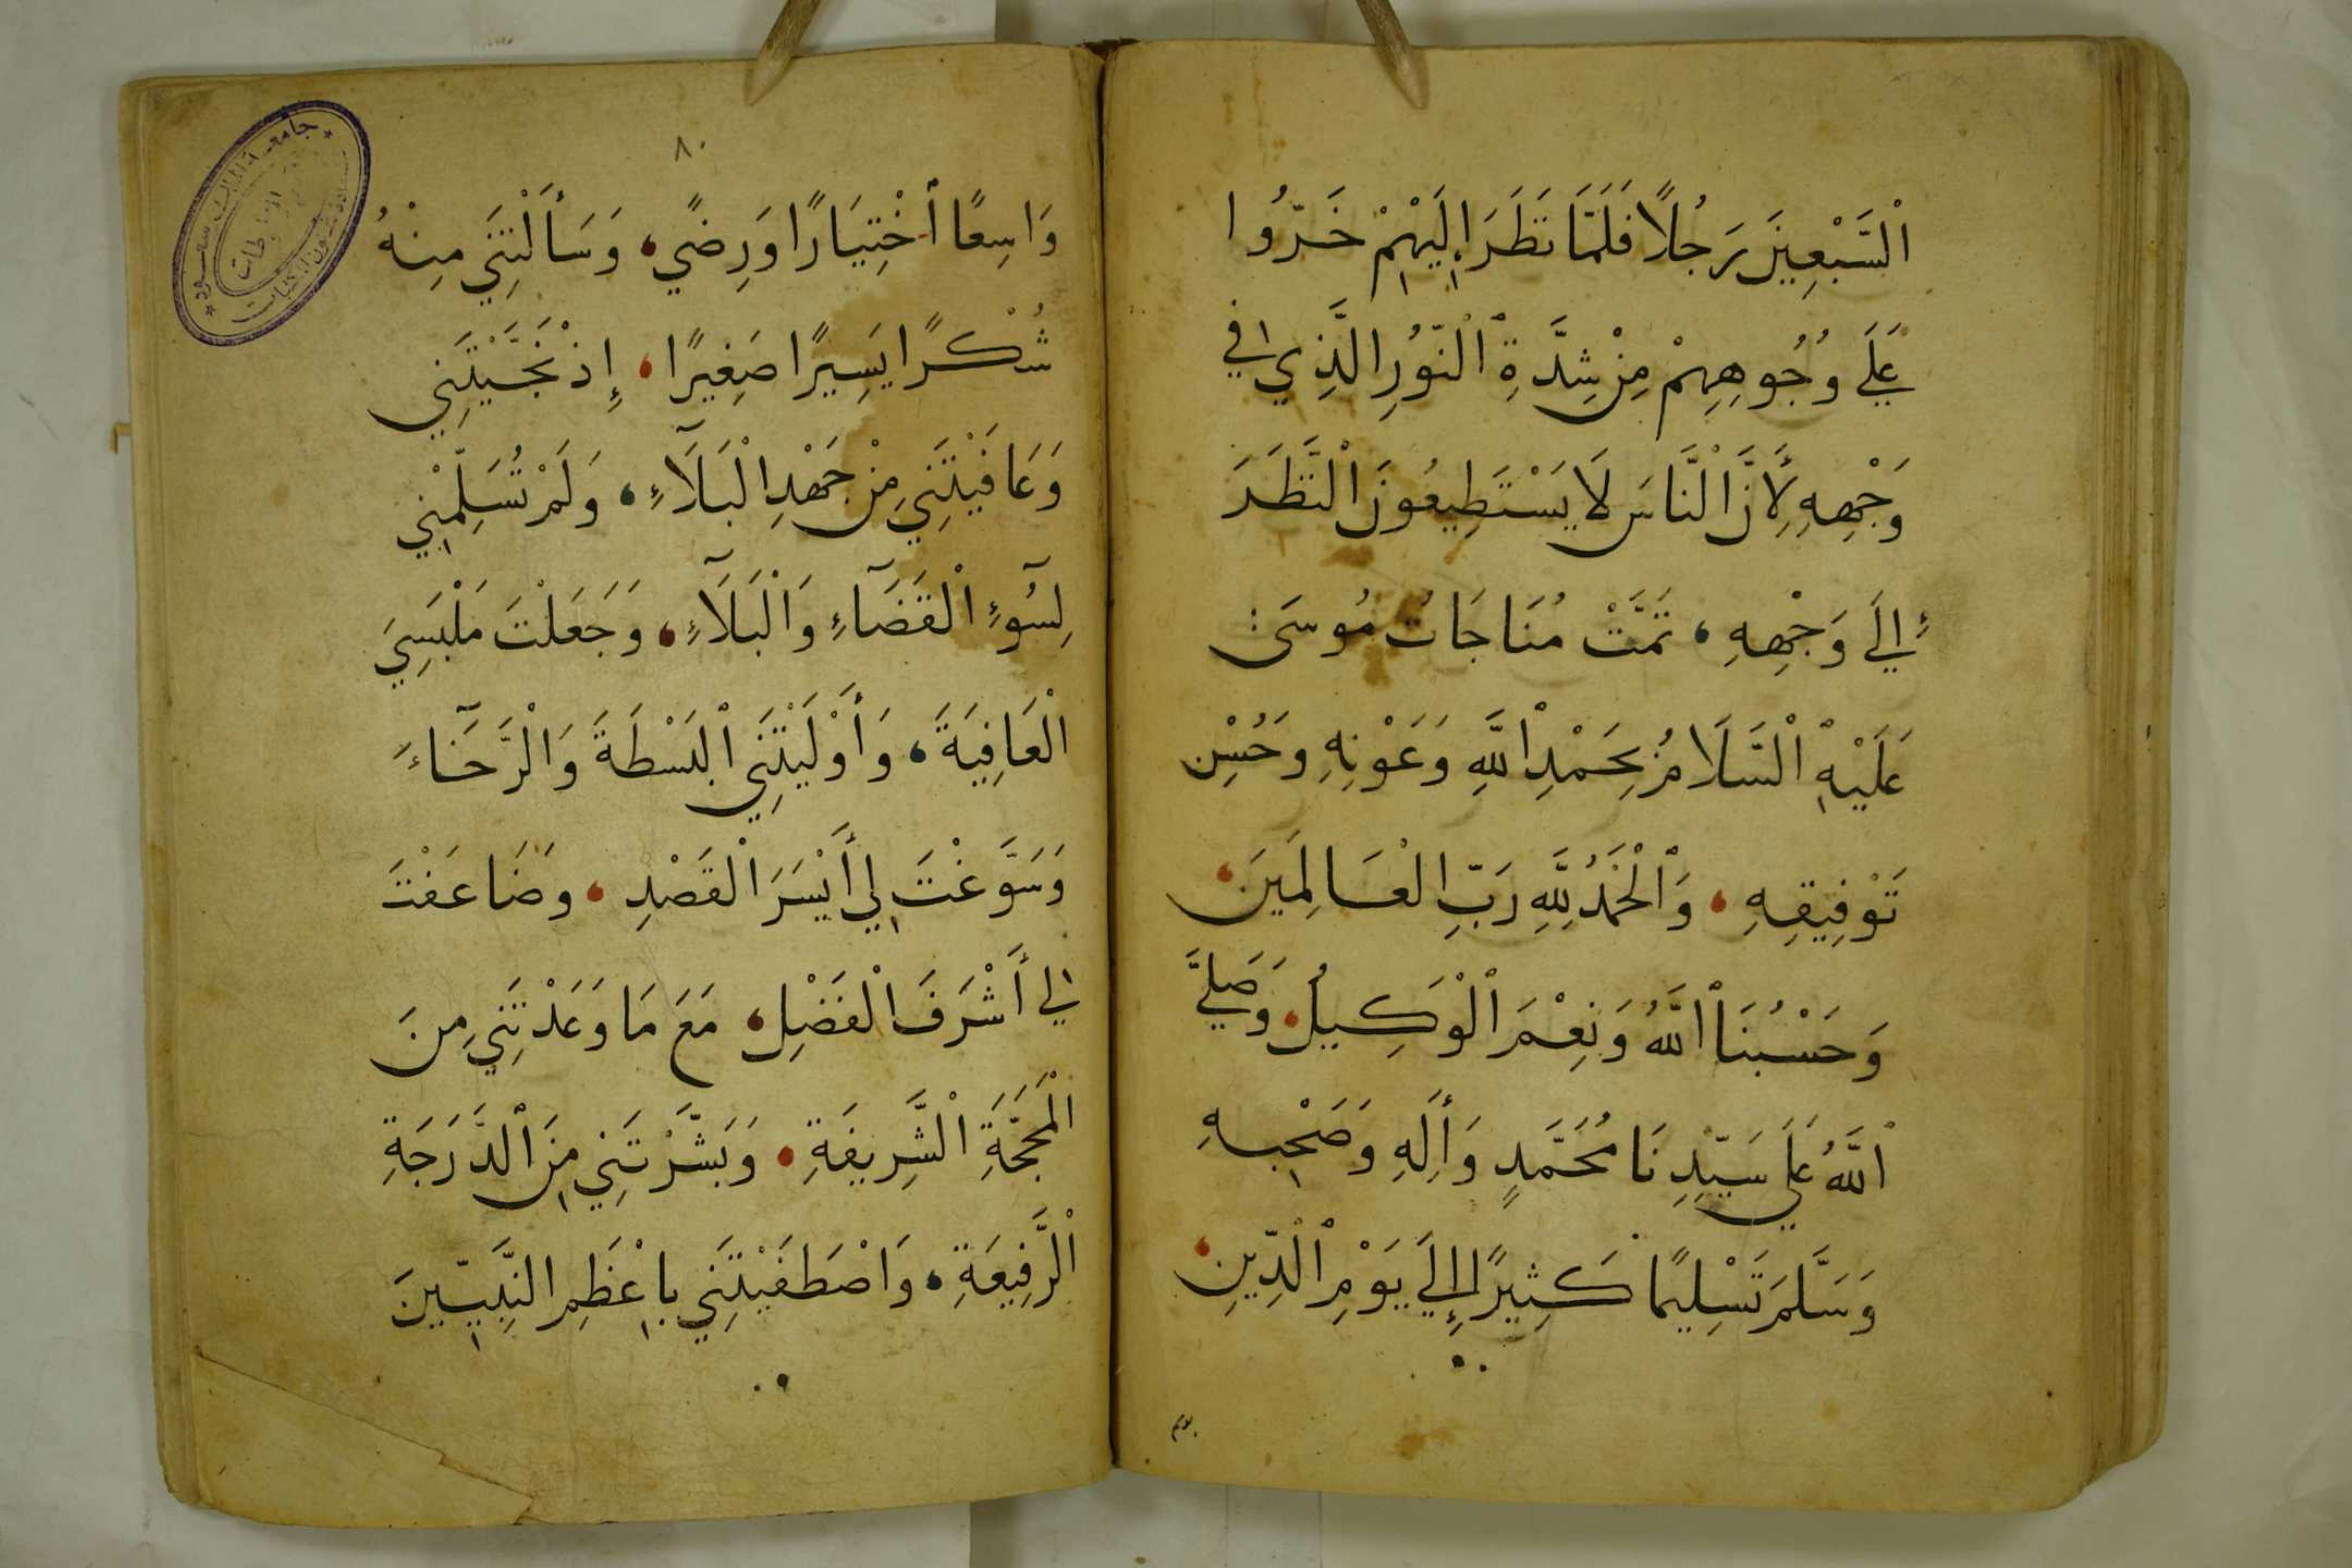 ٱلْسَّبْعِينَ رَجُلًا فَلَمَّا نَظَرَ إِلَيْهِمْ خَرُّوا
عَلَي وُجُوهِهِمْ مِنْ شِدَّةِ ٱلْنُّورِ الَّذِي فِي
وَجْهِهِ لِأَنَّ ٱلْنَّاسَ لَا يَسْتَطِيعُونَ ٱلْنَّظَرَ
إِلَي وَجْهِهِ، تَمَّتْ مُنَاجَاتُ مُوسَىٰ
عَلَيْهِ ٱلْسَّلَامُ بِحَمْدِ ٱللَّهِ وَعَوْنِهِ وَحُسْنِ
تَوْفِيقِهِ، وَٱلْحَمْدُ لِلَّهِ رَبِّ الْعَالَمِينَ،
وَحَسْبُنَا ٱللَّهُ وَنِعْمَ ٱلْوَكِيلُ، وَصَلَّي
ٱللَّهُ عَلَي سَيِّدِنَا مُحَمَّدٍ وَأَلِهِ وَصَحْبِهِ
وَسَلَّمَ تَسْلِيمًا كَثِيرًا إِلَي يَوْمِ ٱلْدِّينِ،
٨٠
وَاسِعًا ٱخْتِيَارًا وَرِضًي، وَسَأَلْتَنِي مِنْهُ
شُكْرًا يَسِيرًا صَغِيرًا، إِذْ نَجَّيْتَنِي
وَعَافَيْتَنِي مِنْ جَهْدِ الْبَلَآءِ، وَلَمْ تُسَلِّمْنِي
لِسُوٓءِ ٱلْقَضَآءِ وَالْبَلَآءِ، وَجَعَلْتَ مَلْبَسِيَ
الْعَافِيَةَ، وَأَوْلَيْتَنِي ٱلْبَسْطَةَ وَالْرَّخَآءَ
وَسَوَّغْتَ لِي أَيْسَرَ الْقَصْدِ، وَضَاعَفْتَ
لِي أَشْرَفَ الْفَضْلِ، مَعَ مَا وَعَدْتَنِي مِنَ
الْمَحَجَّةِ الْشَّرِيفَةِ، وَبَشَّرْتَنِي مِنَ ٱلدَّرَجَةِ
ٱلْرَّفِيعَةِ، وَاصْطَفَيْتَنِي بِأَعْظَمِ النَّبِيِّينَ